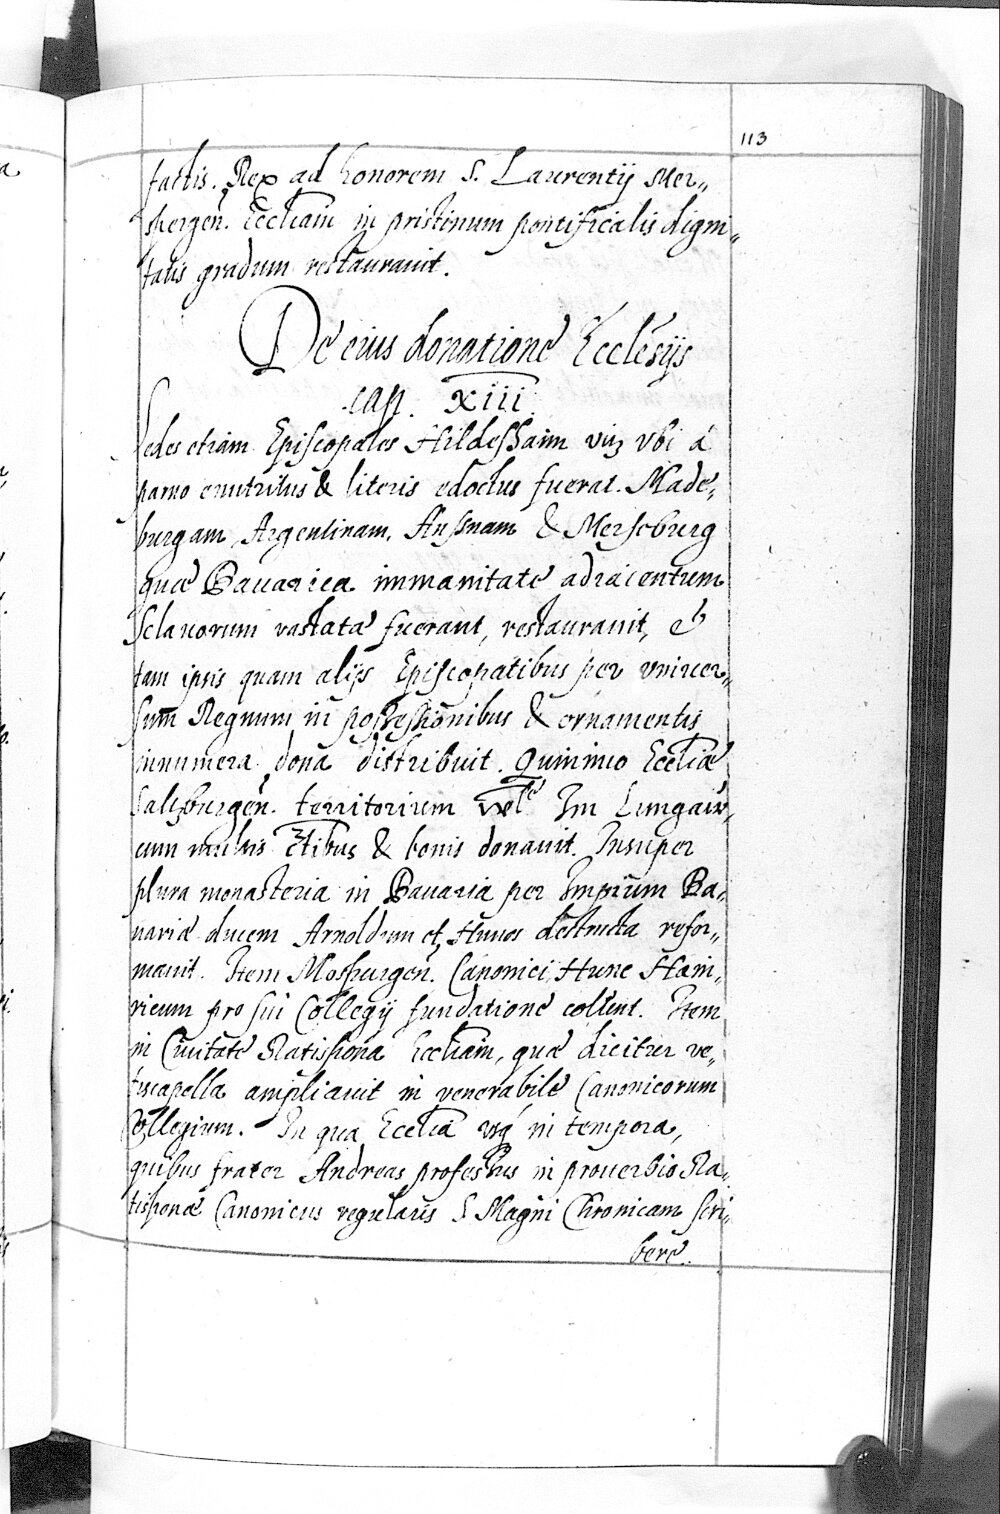 113
factis. Rex ad honorem S. Laurentij Mer„
spergen̄. Eccliam in pristinum pontificalis digni„
tatis gradum restaurauit.
De eius donatione Ecclesijs
cap. XIII.
Sedes etiam Episcopales Hildeshaim viz vbi á
paruo enutritus & literis edoctus fuerat. Made„
burgam, Argentinam, & Merseburg
quæ Bauarica immanitate adiacentum
Sclauorum vastatæ fuerant, restaurauit, &
tam ipsis quam alijs Episcopatibus per vniuer„
sum Regnum in possessionibus & ornamentis
innumera dona distribuit. Quinimo Eccliæ
Saltzburgen̄. territorium Im Lungaw„
cum multis & bonis donauit. Insuper
plura monasteria in Bauaria per Impium Ba„
uariæ ducem Arnoldum et Hunos destructa refor„
mauit. Item Mospurgen̄. Canonici Hunc Hain„
ricum pro sui Collegij fundatione colunt. Item
in Ciuitate Ratispona Eccliam, quæ dicitur ve„
tuscapella ampliauit in venerabile Canonicorum
Collegium. In qua Ecclia vsq in tempora,
quibus frater Andreas professus in prouerbio Ra„
tisponæ Canonicus regularis S. Magni Chronicam scri„
bere.